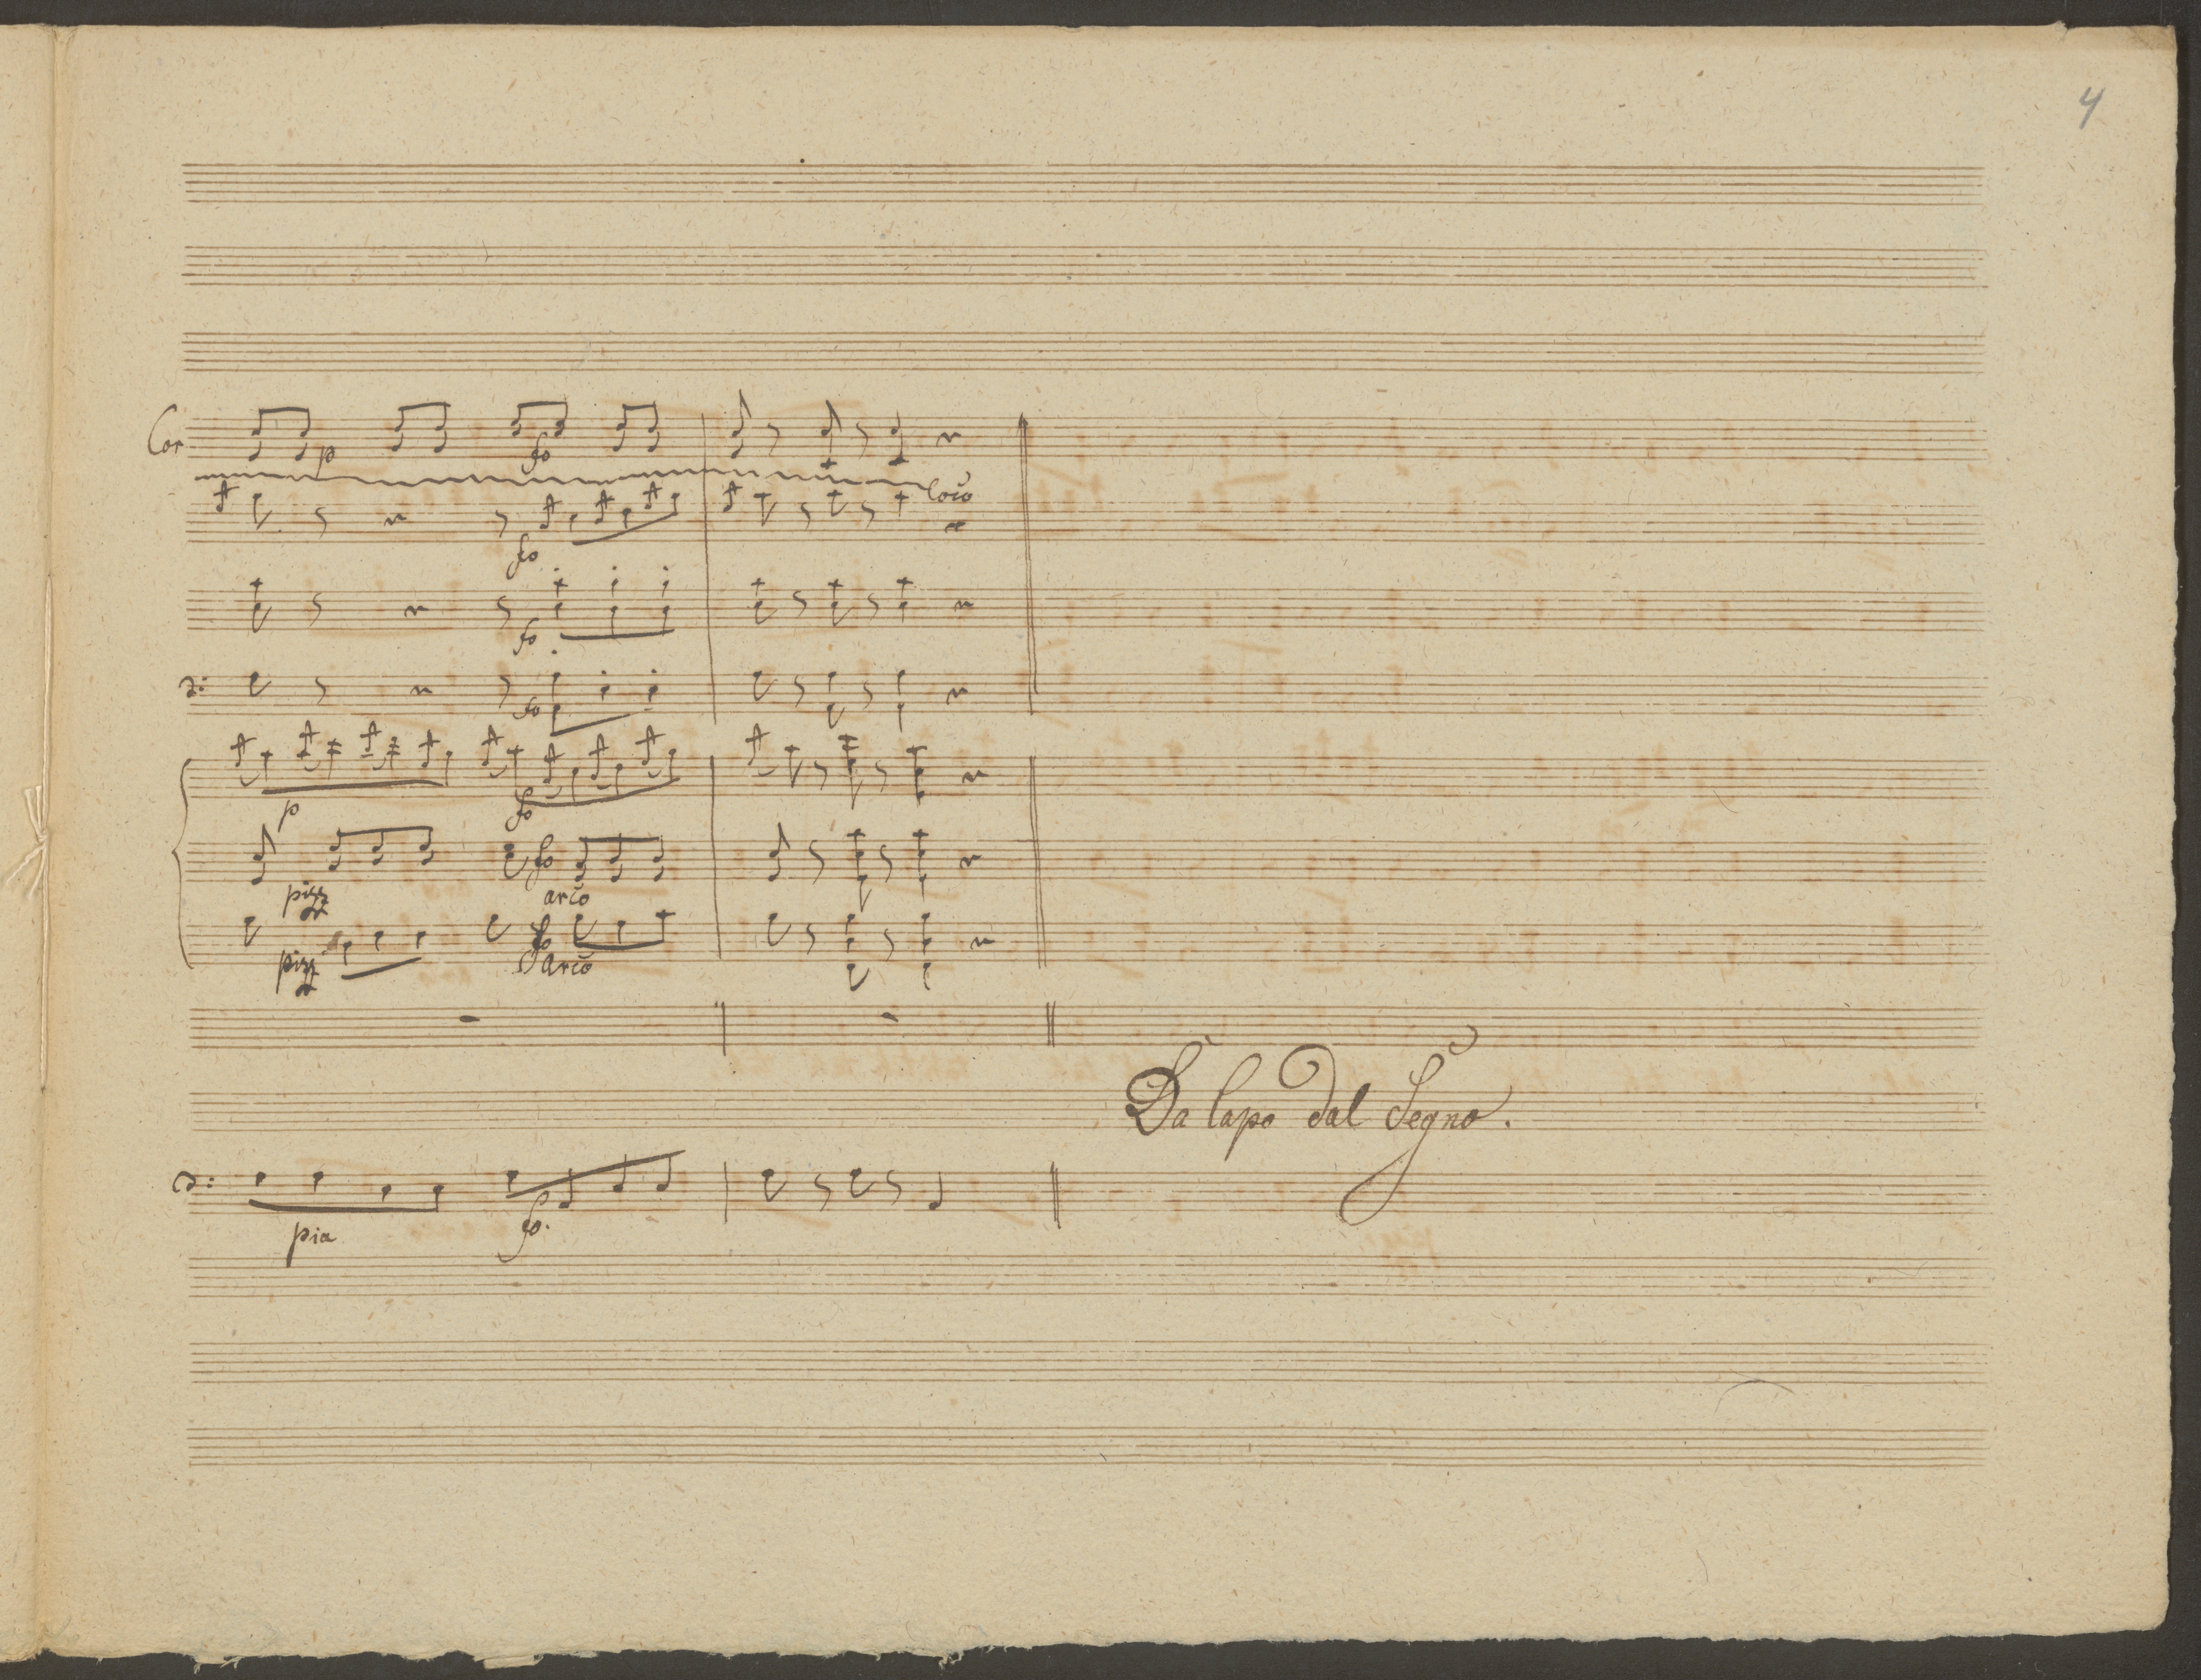 4
Cor
p fo
loco
fo
fo
2: fo
p fo
pizz fo arco
pizz fo arco
Da Capo dal Segno.
pia fo.